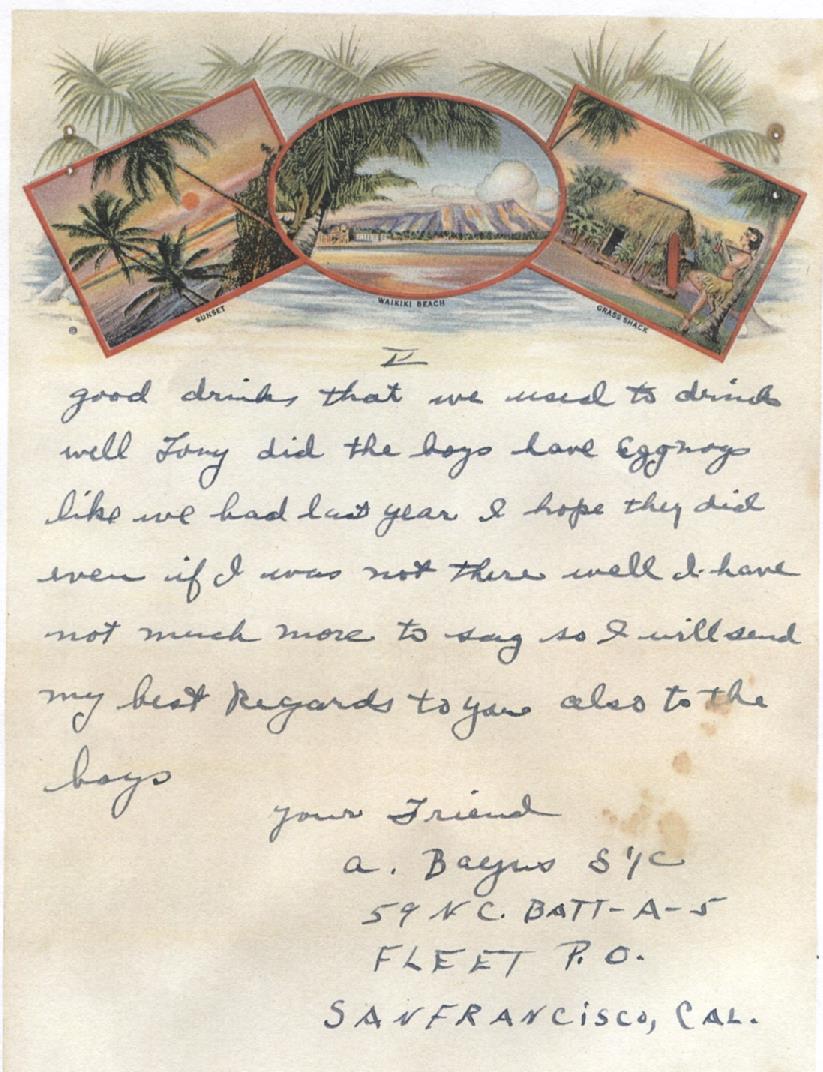 SUNSET
WAIKIKI BEACH
GRASS SHACK
V
good drinks that we used to drink
well Tony did the boys have Eggnogs
like we had last year I hope they did
even if I was not there well I have
not much more to say so I will send
my best Regards to you also to the
boys
your Friend
a. Bagus S1/C
59 N C. BATT-A-5
FLEET P.O.
SANFRANCiSCO, CAL.